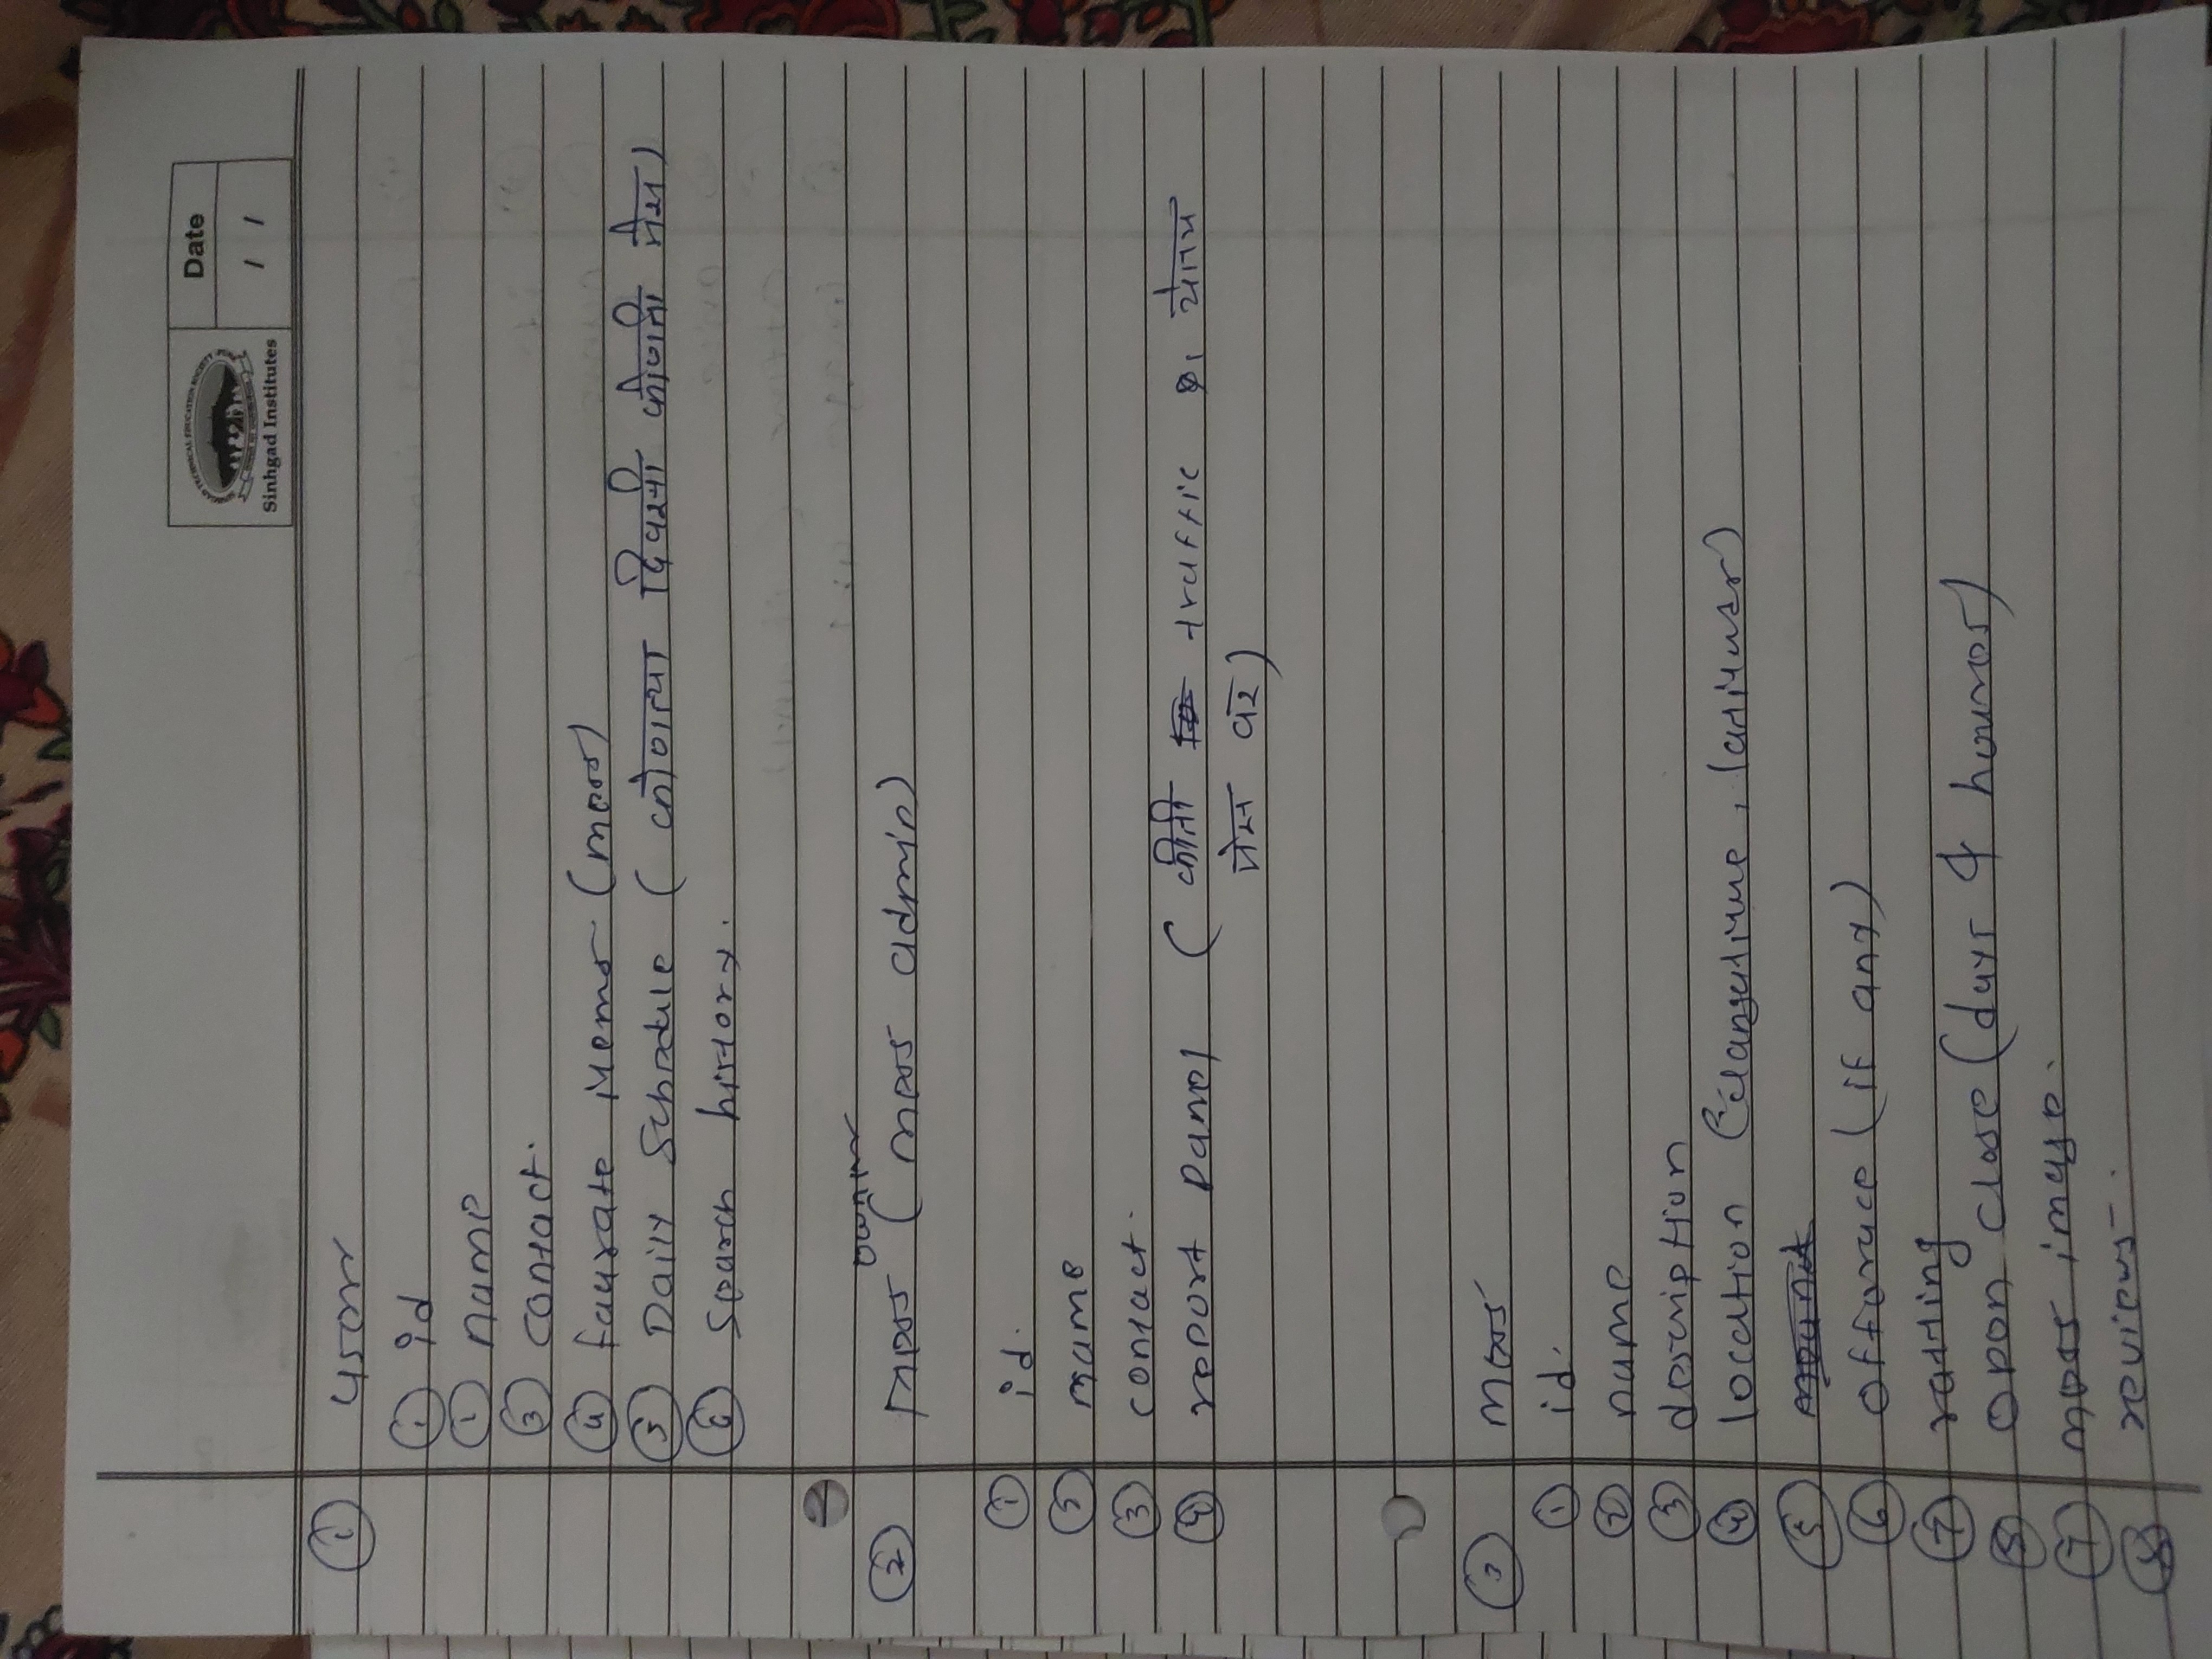 Date
Sinhgad Institutes
/ /
① user
① id
① name
③ contact.
④ faurate items (mess)
⑤ Daily Schedule ( कोणत्या दिवसी कोणती मेस)
⑥ search history.
owner
② mess ( mess admin)
① id.
② name
③ contact.
④ report panel ( कीती traffic येतय
मेस वर)
③ mess
① id.
② name
③ description
④ location
⑤
⑥ (if any)
⑦ ratting
⑧ open close (days & houres)
⑦ mess image.
⑧ reviews.